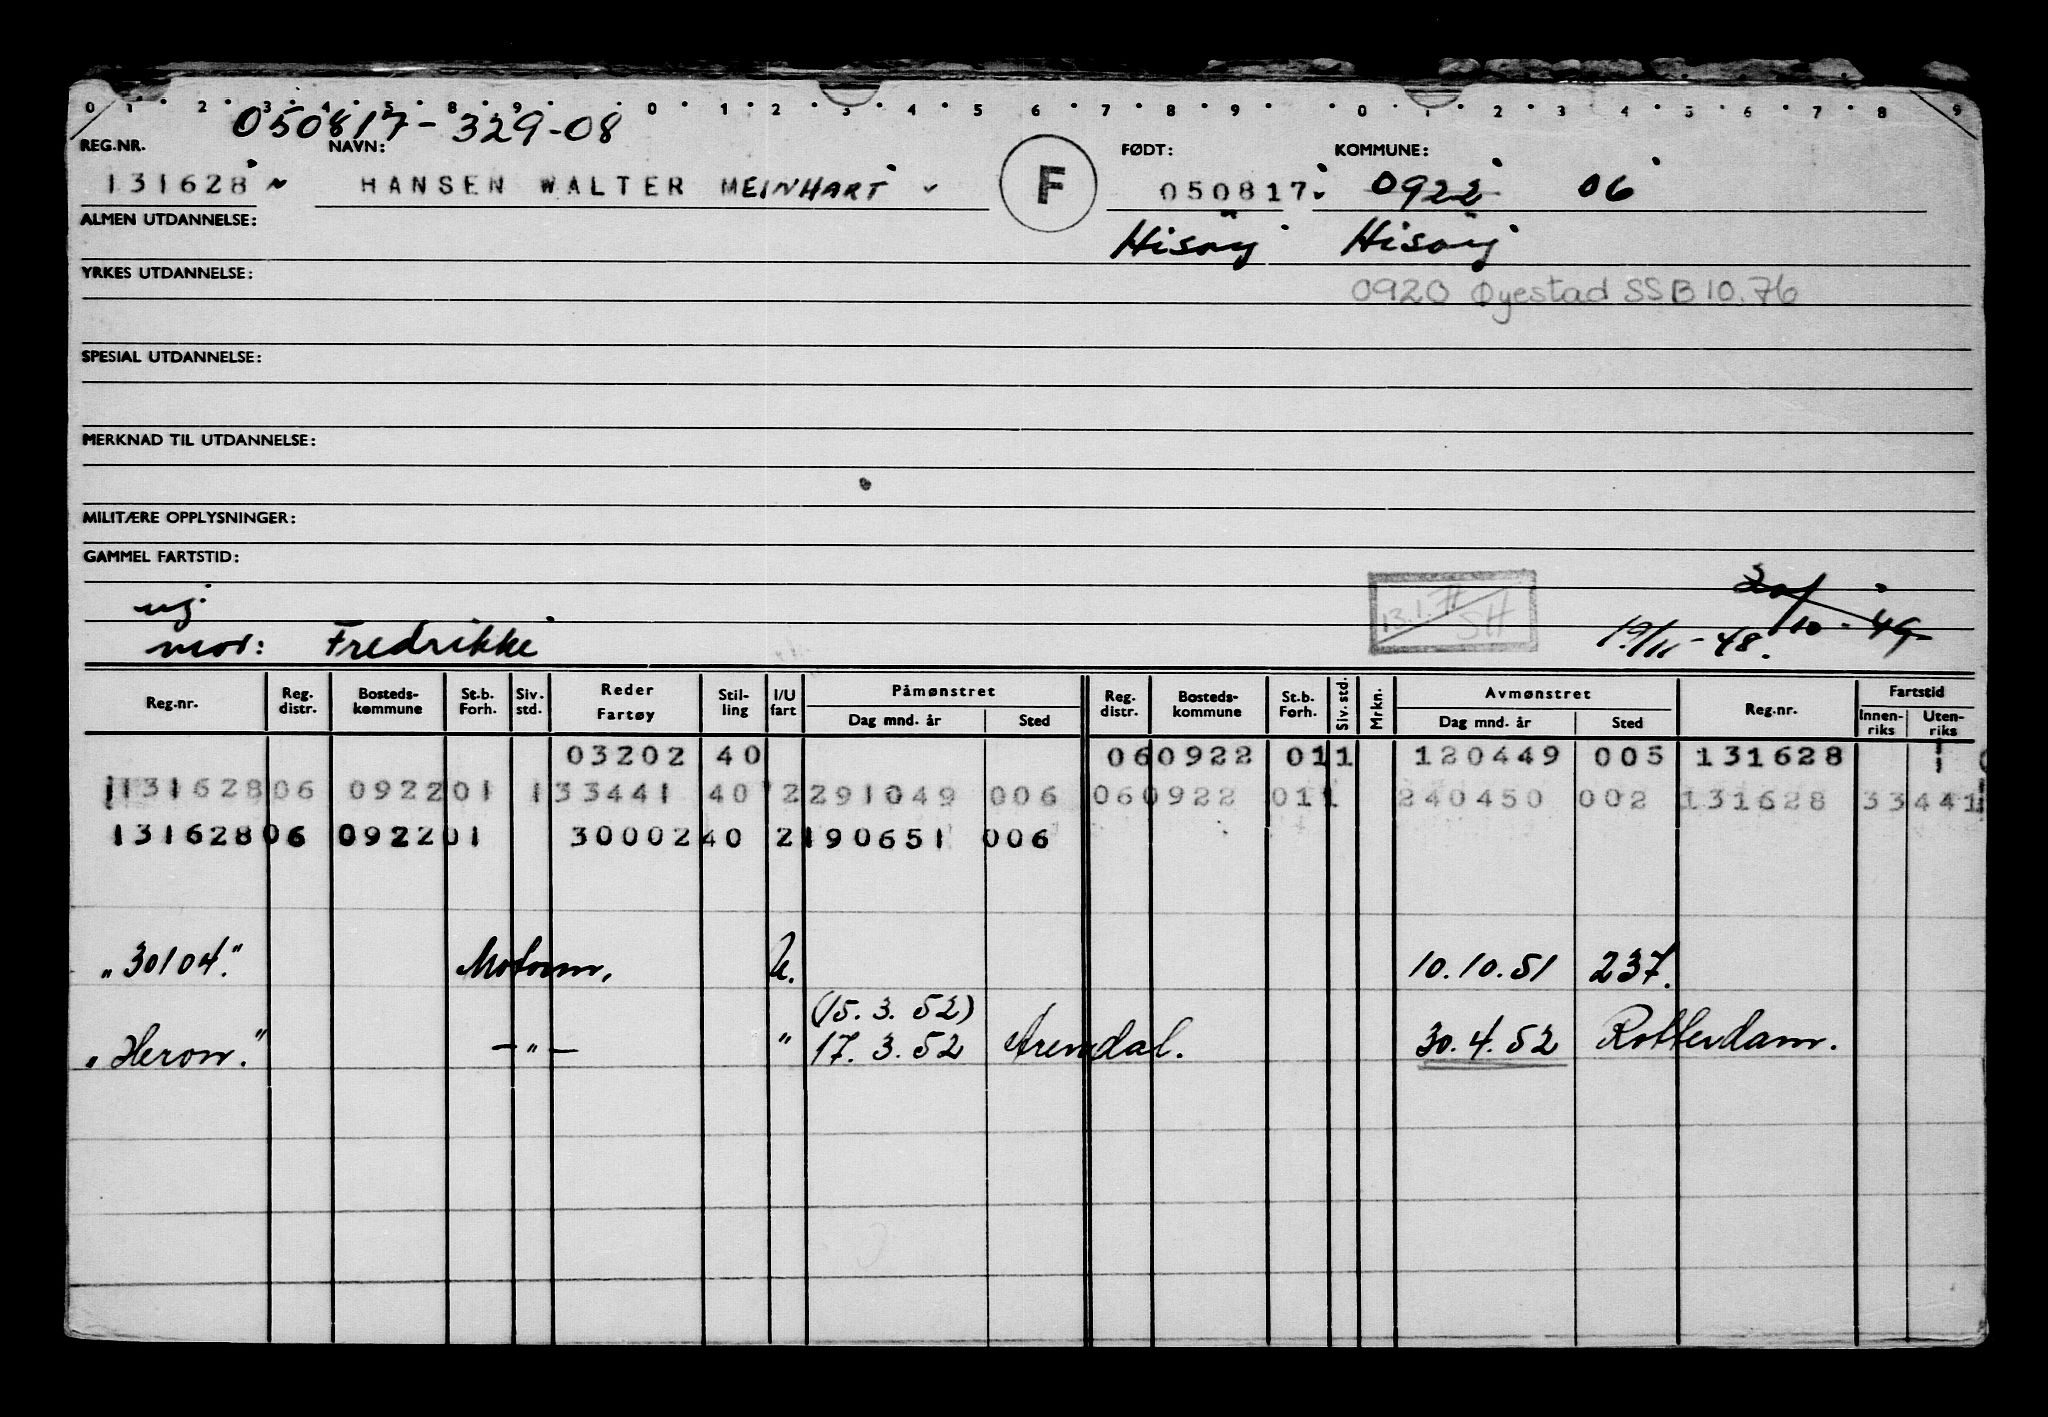 0 1 2 3 4 5 8 9 0 1 2 3 4 5 6 7 8 9 0 1 2 3 4 5 6 7 8 9
050817-329-08
REG.NR. NAVN: FØDT: KOMMUNE:
131628 HANSEN WALTER MEINHART F 050817 0922 06
ALMEN UTDANNELSE: Hisøy Hisøy
YRKES UTDANNELSE:
0920 Øyestad SSB 10.76
SPESIAL UTDANNELSE:
MERKNAD TIL UTDANNELSE:
MILITÆRE OPPLYSNINGER:
GAMMEL FARTSTID:
ug. 13.1. SH 20/10-49
mor: Fredrikke 19/11-48.
Reg.nr. Reg. distr. Bosteds-kommune St.b. Forh. Siv. std. Reder Fartøy Stil-ling I/U fart Påmønstret Dag mnd. år Sted Reg. distr. Bosteds-kommune St.b. Forh. Siv. std. Mrkn. Avmønstret Dag mnd. år Sted Reg.nr. Fartstid Innen-riks Uten-riks
03202 40 06 0922 01 1 120449 005 131628 1
131628 06 0922 01 1 33441 40 2 291049 006 06 0922 01 1 240450 002 131628 33441
131628 06 0922 01 30002 40 2 190651 006
„30104." Motorm. U. 10.10.51 237.
(15.3.52)
„Heron." -„- " 17.3.52 Arendal. 30.4.52 Rotterdam.